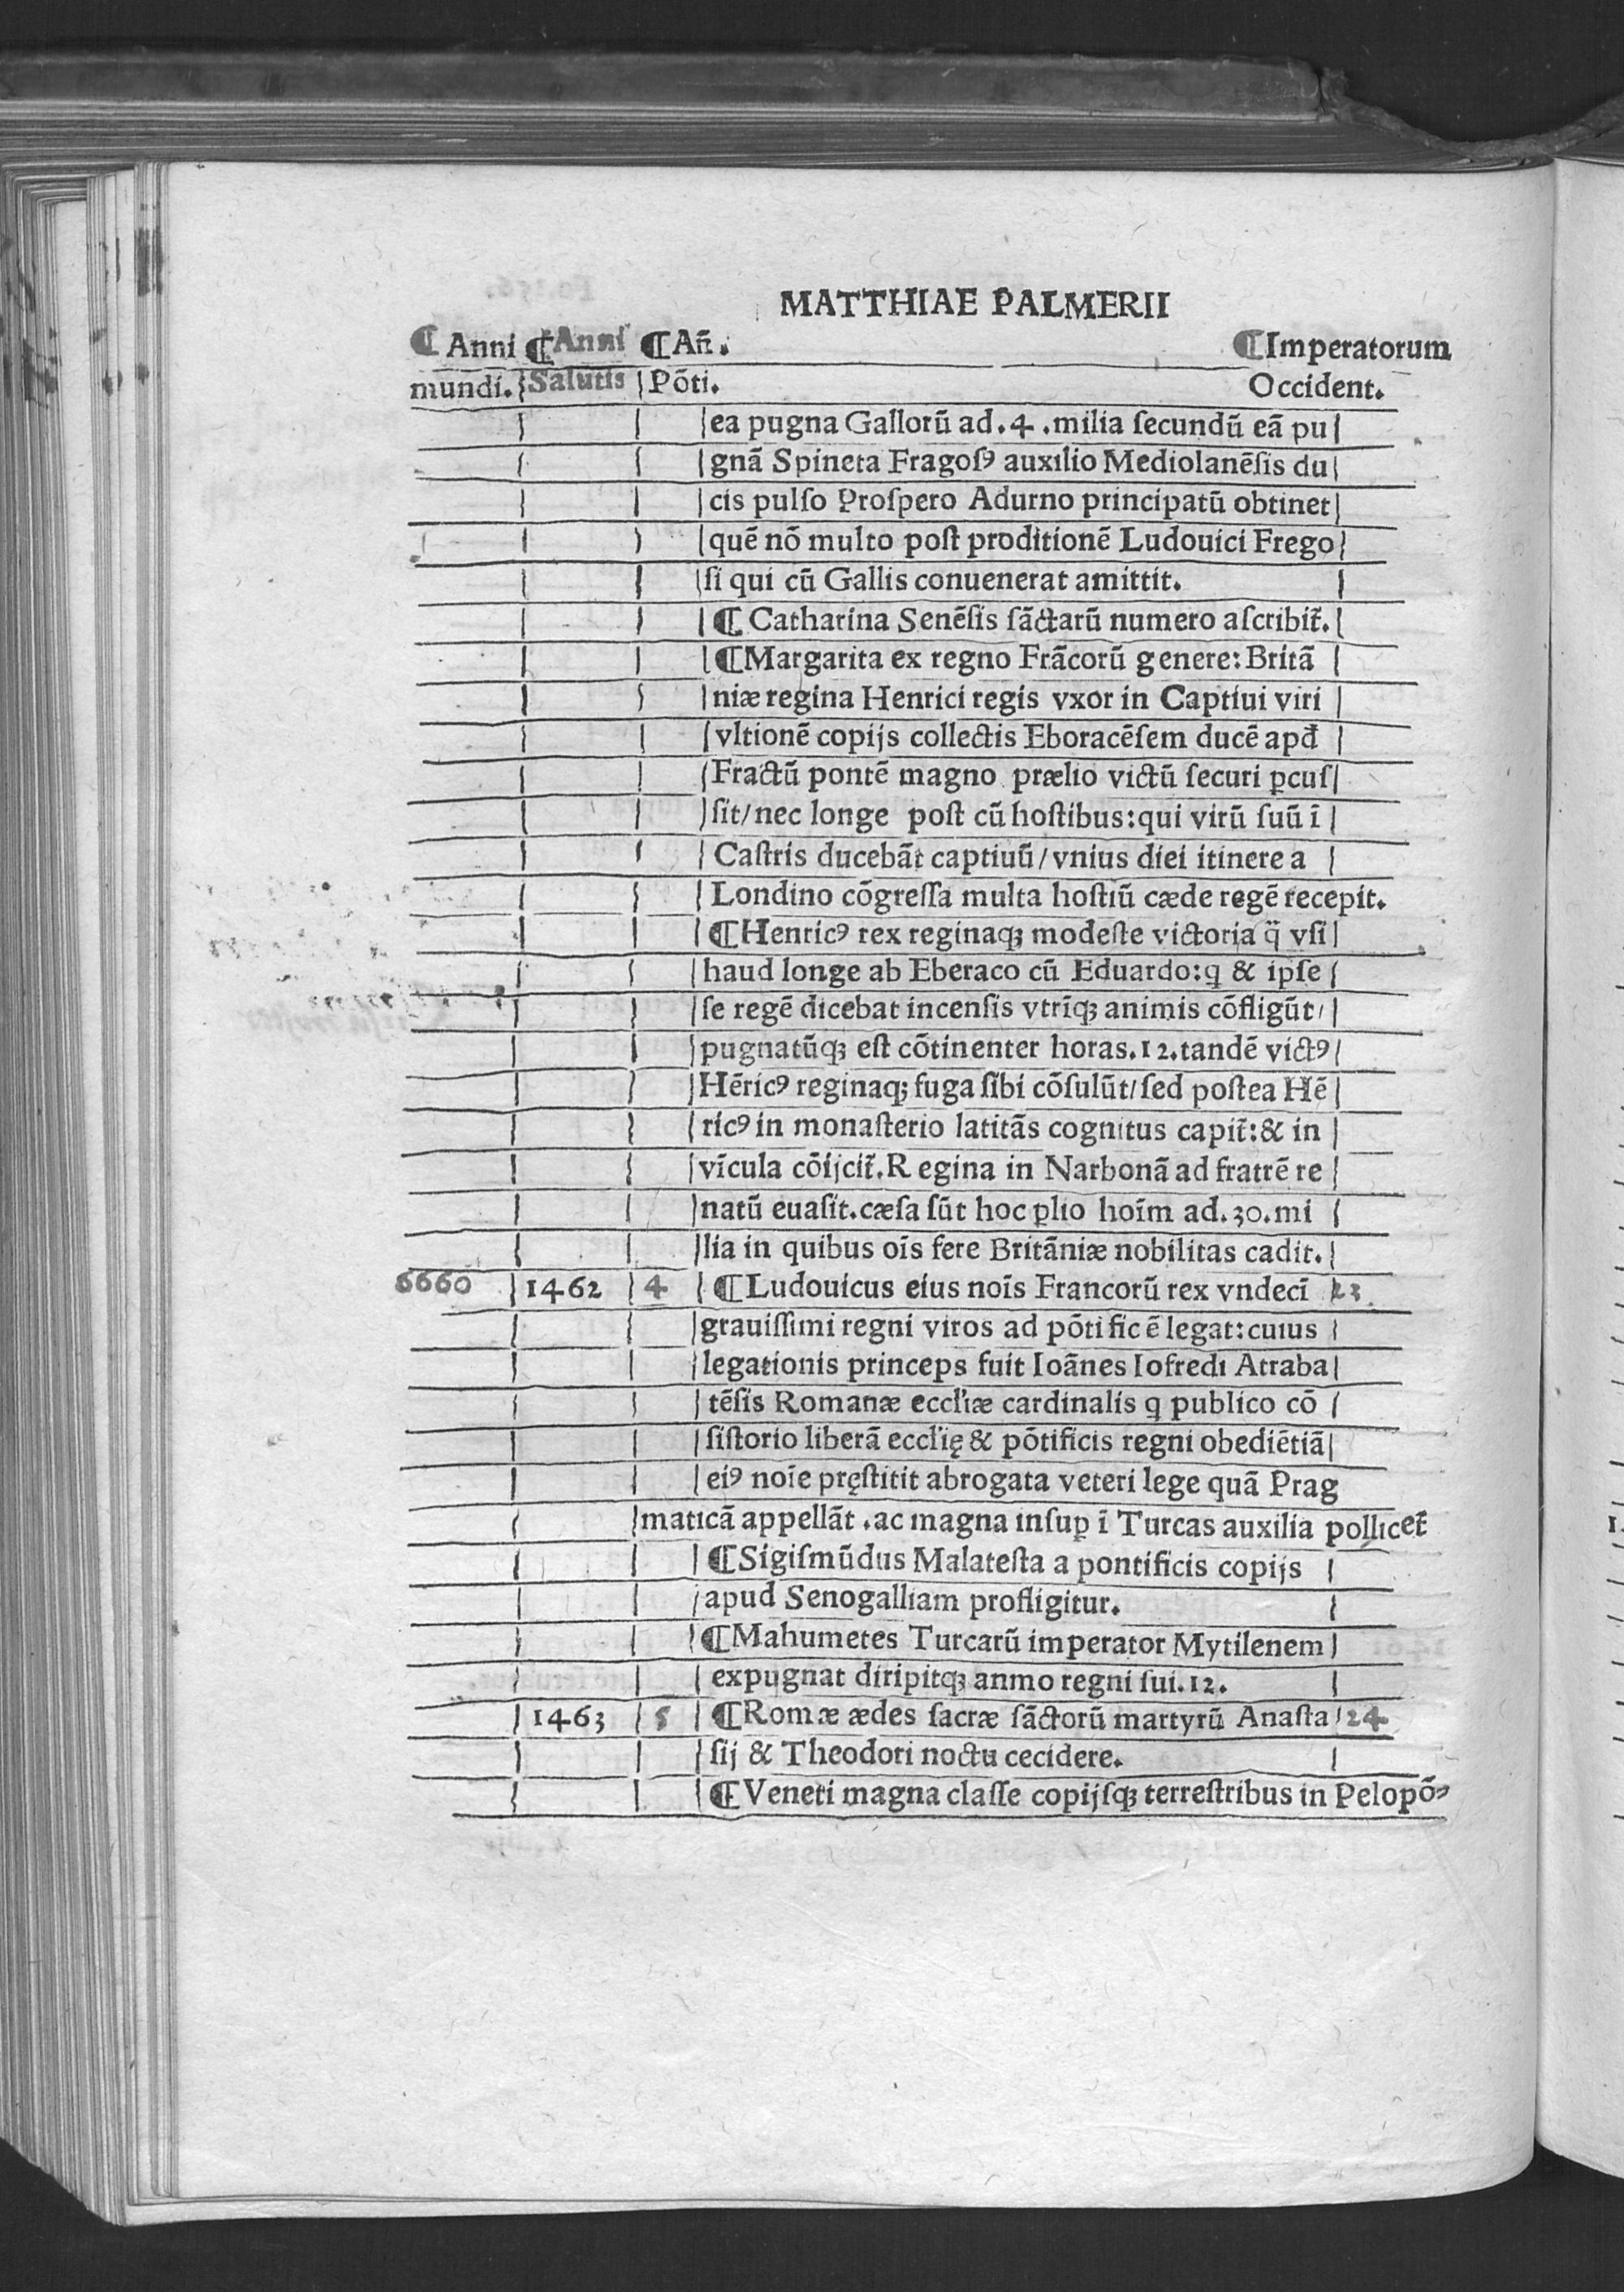 MATTHIAE PALMERII
¶ Anni ¶ Anni ¶ Añ. ¶ Imperatorum
mundi. Salutis Põti. Occident.
ea pugna Gallorũ ad.4.milia ſecundũ eã pu
gnã Spineta Fragoſꝰ auxilio Mediolanẽſis du
cis pulſo Proſpero Adurno principatũ obtinet
quẽ nõ multo poſt proditionẽ Ludouici Frego
ſi qui cũ Gallis conuenerat amittit.
¶ Catharina Senẽſis ſãctarũ numero aſcribit̃.
¶ Margarita ex regno Frãcorũ genere: Britã
niæ regina Henrici regis vxor in Captiui viri
vltionẽ copijs collectis Eboracẽſem ducẽ apđ
Fractũ pontẽ magno prælio victũ ſecuri ꝑcuſ
ſit/nec longe poſt cũ hoſtibus:qui virũ ſuũ ĩ
Caſtris ducebãt captiuũ/vnius diei itinere a
Londino cõgreſſa multa hoſtiũ cæde regẽ recepit.
¶ Henricꝰ rex reginaqꝫ modeſte victoria q̃ vſi
haud longe ab Eberaco cũ Eduardo:ꝗ & ipſe
ſe regẽ dicebat incenſis vtrĩqꝫ animis cõfligũt/
pugnatũqꝫ eſt cõtinenter horas.12.tandẽ victꝰ
Hẽricꝰ reginaqꝫ fuga ſibi cõſulũt/ſed poſtea Hẽ
ricꝰ in monaſterio latitãs cognitus capit̃:& in
vĩcula cõijcit̃.R egina in Narbonã ad fratrẽ re
natũ euaſit.cæſa ſũt hoc ꝑlio hoĩm ad.30.mi
lia in quibus oĩs fere Britãniæ nobilitas cadit.
6660 1462 4 ¶ Ludouicus eius noĩs Francorũ rex vndecĩ 23
grauiſſimi regni viros ad põtificẽ legat:cuius
legationis princeps fuit Ioãnes Iofredi Atraba
tẽſis Romanæ eccl'iæ cardinalis ꝗ publico cõ
ſiſtorio liberã eccl'ię & põtificis regni obediẽtiã
eiꝰ noĩe pręſtitit abrogata veteri lege quã Prag
maticã appellãt .ac magna inſuꝑ ĩ Turcas auxilia pollicet̃
¶ Sigiſmũdus Malateſta a pontificis copijs
apud Senogalliam profligitur.
¶ Mahumetes Turcarũ imperator Mytilenem
expugnat diripitqꝫ anmo regni ſui.12.
1463 5 ¶ Romæ ædes ſacræ ſãctorũ martyrũ Anaſta 24
ſij & Theodori noctu cecidere.
¶ Veneti magna claſſe copijſqꝫ terreſtribus in Pelopõ⸗